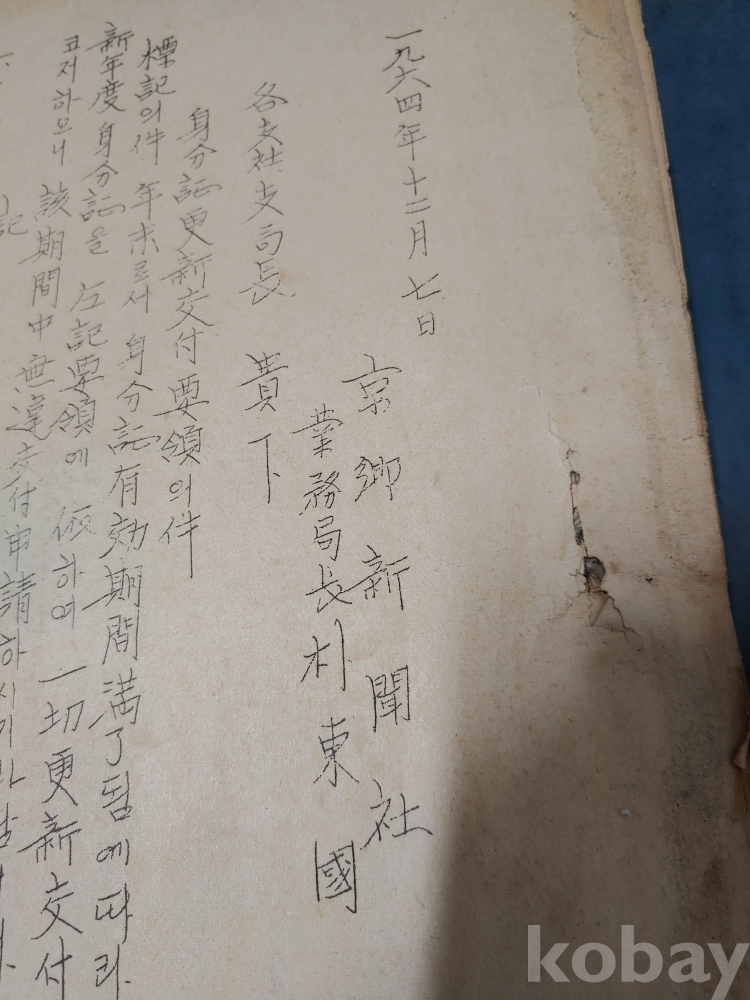 一九六四年十二月七日
京鄕新聞社
業務局長 朴東國
各支社支局長 貴下
身分証更新交付要領의件
標記의件 年末로서 身分証有効期間満了됨에따라
新年度身分証을 左記要領에 依하여 一切更新交付
코저하오니 該期間中無違交付申請하시기바랍니다
記
kobay